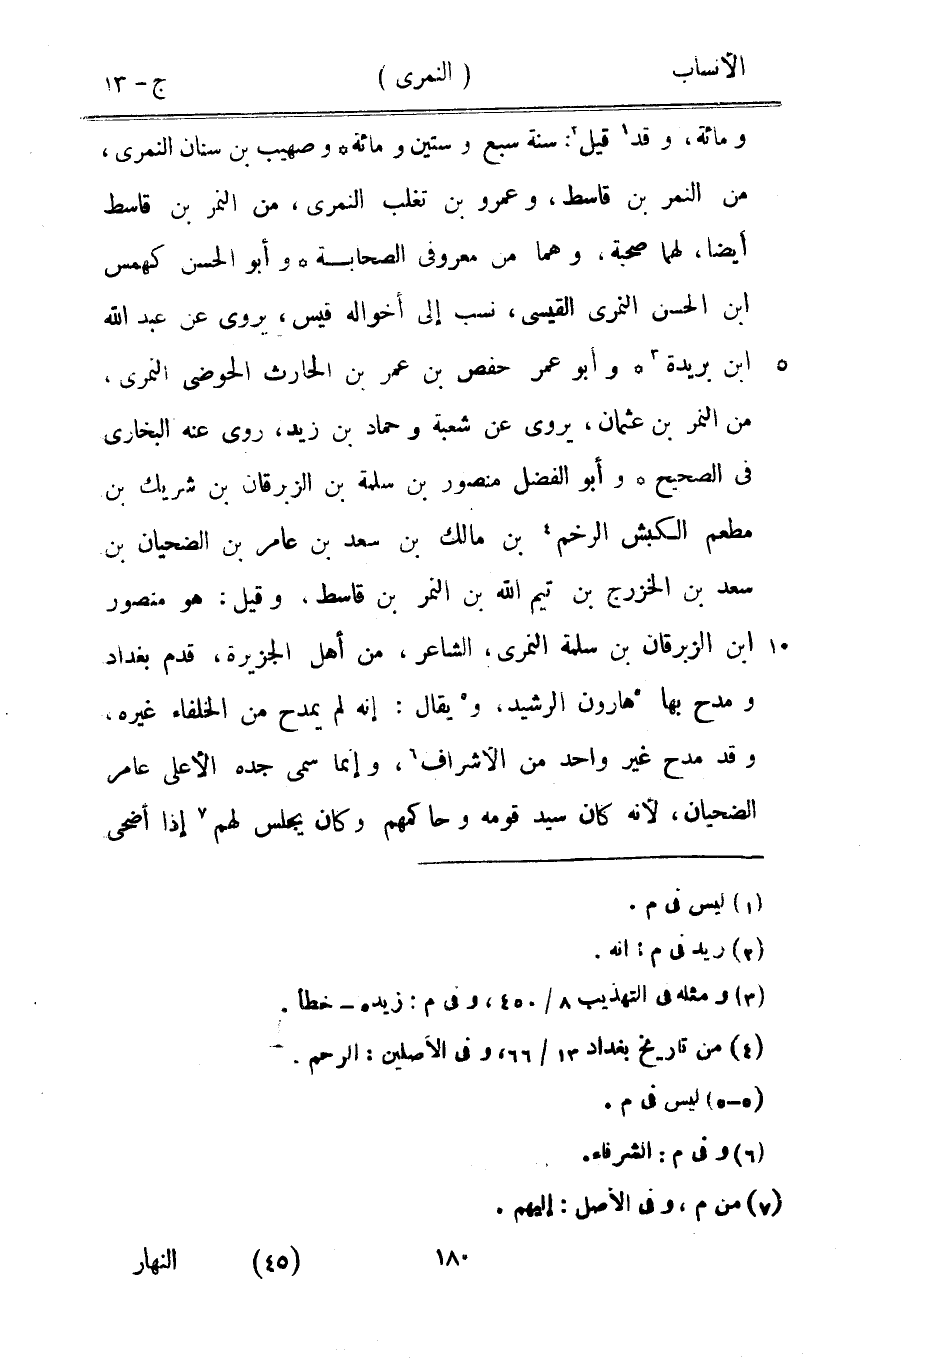 الأنساب ( النمرى ) ج - ١٣
و مائة، و قد١ قيل٢: سنة سبع و ستين و مائة ه و صهيب بن سنان النمرى،
من النمر بن قاسط، و عمرو بن تغلب النمرى، من النمر بن قاسط
أيضا، لهما صحبة، و هما من معروفى الصحابة ه و أبو الحسن كهمس
ابن الحسن النمرى القيسى، نسب إلى أخواله قيس، يروى عن عبد الله
٥ ابن بريدة٣ ه و أبو عمر حفص بن عمر بن الحارث الحوضى النمرى،
من النمر بن عثمان، يروى عن شعبة و حماد بن زيد، روى عنه البخارى
فى الصحيح ه و أبو الفضل منصور بن سلمة بن الزبرقان بن شريك بن
مطعم الكبش الرخم٤ بن مالك بن سعد بن عامر بن الضحيان بن
سعد بن الخزرج بن تيم الله بن النمر بن قاسط. و قيل: هو منصور
١٠ ابن الزبرقان بن سلمة النمرى، الشاعر، من أهل الجزيرة، قدم بغداد
و مدح بها ٥هارون الرشيد، و٥ يقال: إنه لم يمدح من الخلفاء غيره،
و قد مدح غير واحد من الأشراف٦، و إنما سمى جده الأعلى عامر
الضحيان، لأنه كان سيد قومه و حاكمهم و كان يجلس لهم٧ إذا أضحى
(١) ليس فى م.
(٢) زيد فى م: انه.
(٣) و مثله فى التهذيب ٨ / ٤٥٠، و فى م: زيده - خطأ.
(٤) من تاريخ بغداد ١٣ / ٦٦، و فى الأصلين: الرحم.
(٥-٥) ليس فى م.
(٦) و فى م: الشرفاء.
(٧) من م، و فى الأصل: إليهم.
١٨٠ (٤٥) النهار